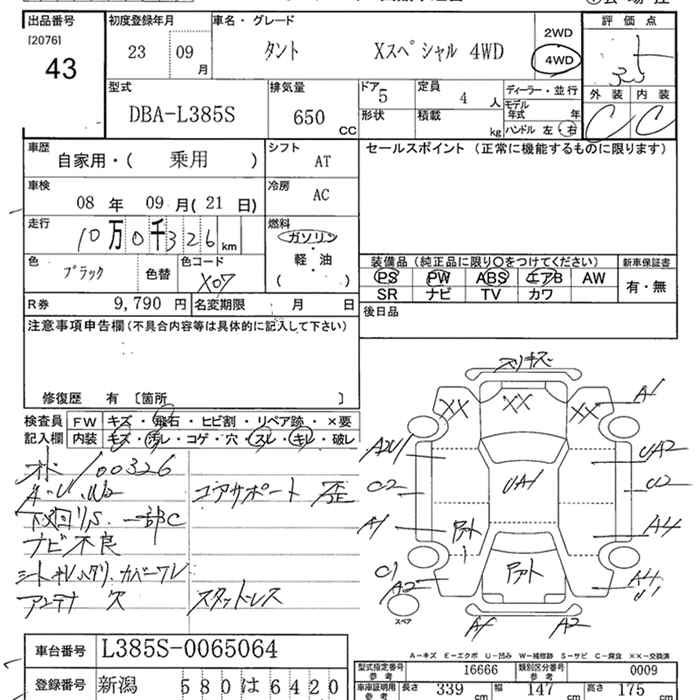 出品番号 初度登録年月 車名・グレード 評価点
[2076] 2WD
43 23 09 月 タント Xスペシャル 4WD 4WD
3.5
型式 排気量 ドア 5 定員 4 人 ディーラー・並行 外装 内装
DBA-L385S 650 CC 形状 積載 kg モデル年式 年 C C
ハンドル 左・右
車歴 シフト セールスポイント (正常に機能するものに限ります)
自家用・( 乗用 ) AT
車検 冷房
08 年 09 月 ( 21 日) AC
走行 燃料
10 万 0 千 3 2 6 km ガソリン
軽・油
色 色コード 装備品 (純正品に限り○をつけてください) 新車保証書
ブラック 色替 X07 ( ) PS PW ABS エアB AW 有・無
R券 9,790 円 名変期限 月 日 SR ナビ TV カワ
注意事項申告欄 (不具合内容等は具体的に記入して下さい) 後日品
修復歴 有 〔箇所 〕
検査員 FW キズ・飛石・ヒビ割・リペア跡・×要
記入欄 内装 キズ・汚レ・コゲ・穴・スレ・キレ・破レ
100326
コアサポート 歪
下回りS 一部C
ナビ不良
アンテナ 欠 スタッドレス
XX XX XX A1
UA2
C2 UA1 U2
A1 A4
C1 A2 A4
スペア A1 A2
車台番号 L385S-0065064
A-キズ E-エクボ U-凹み W-補修跡 S-サビ C-腐食 XX-交換済
型式指定番号 参考 16666 類別区分番号 参考 0009
登録番号 新潟 580 は 6420
車庫証明用 参考 長さ 339 cm 幅 147 cm 高さ 175 cm